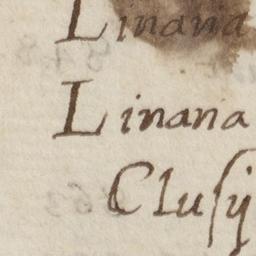 Linaria
Linaria
Clusij